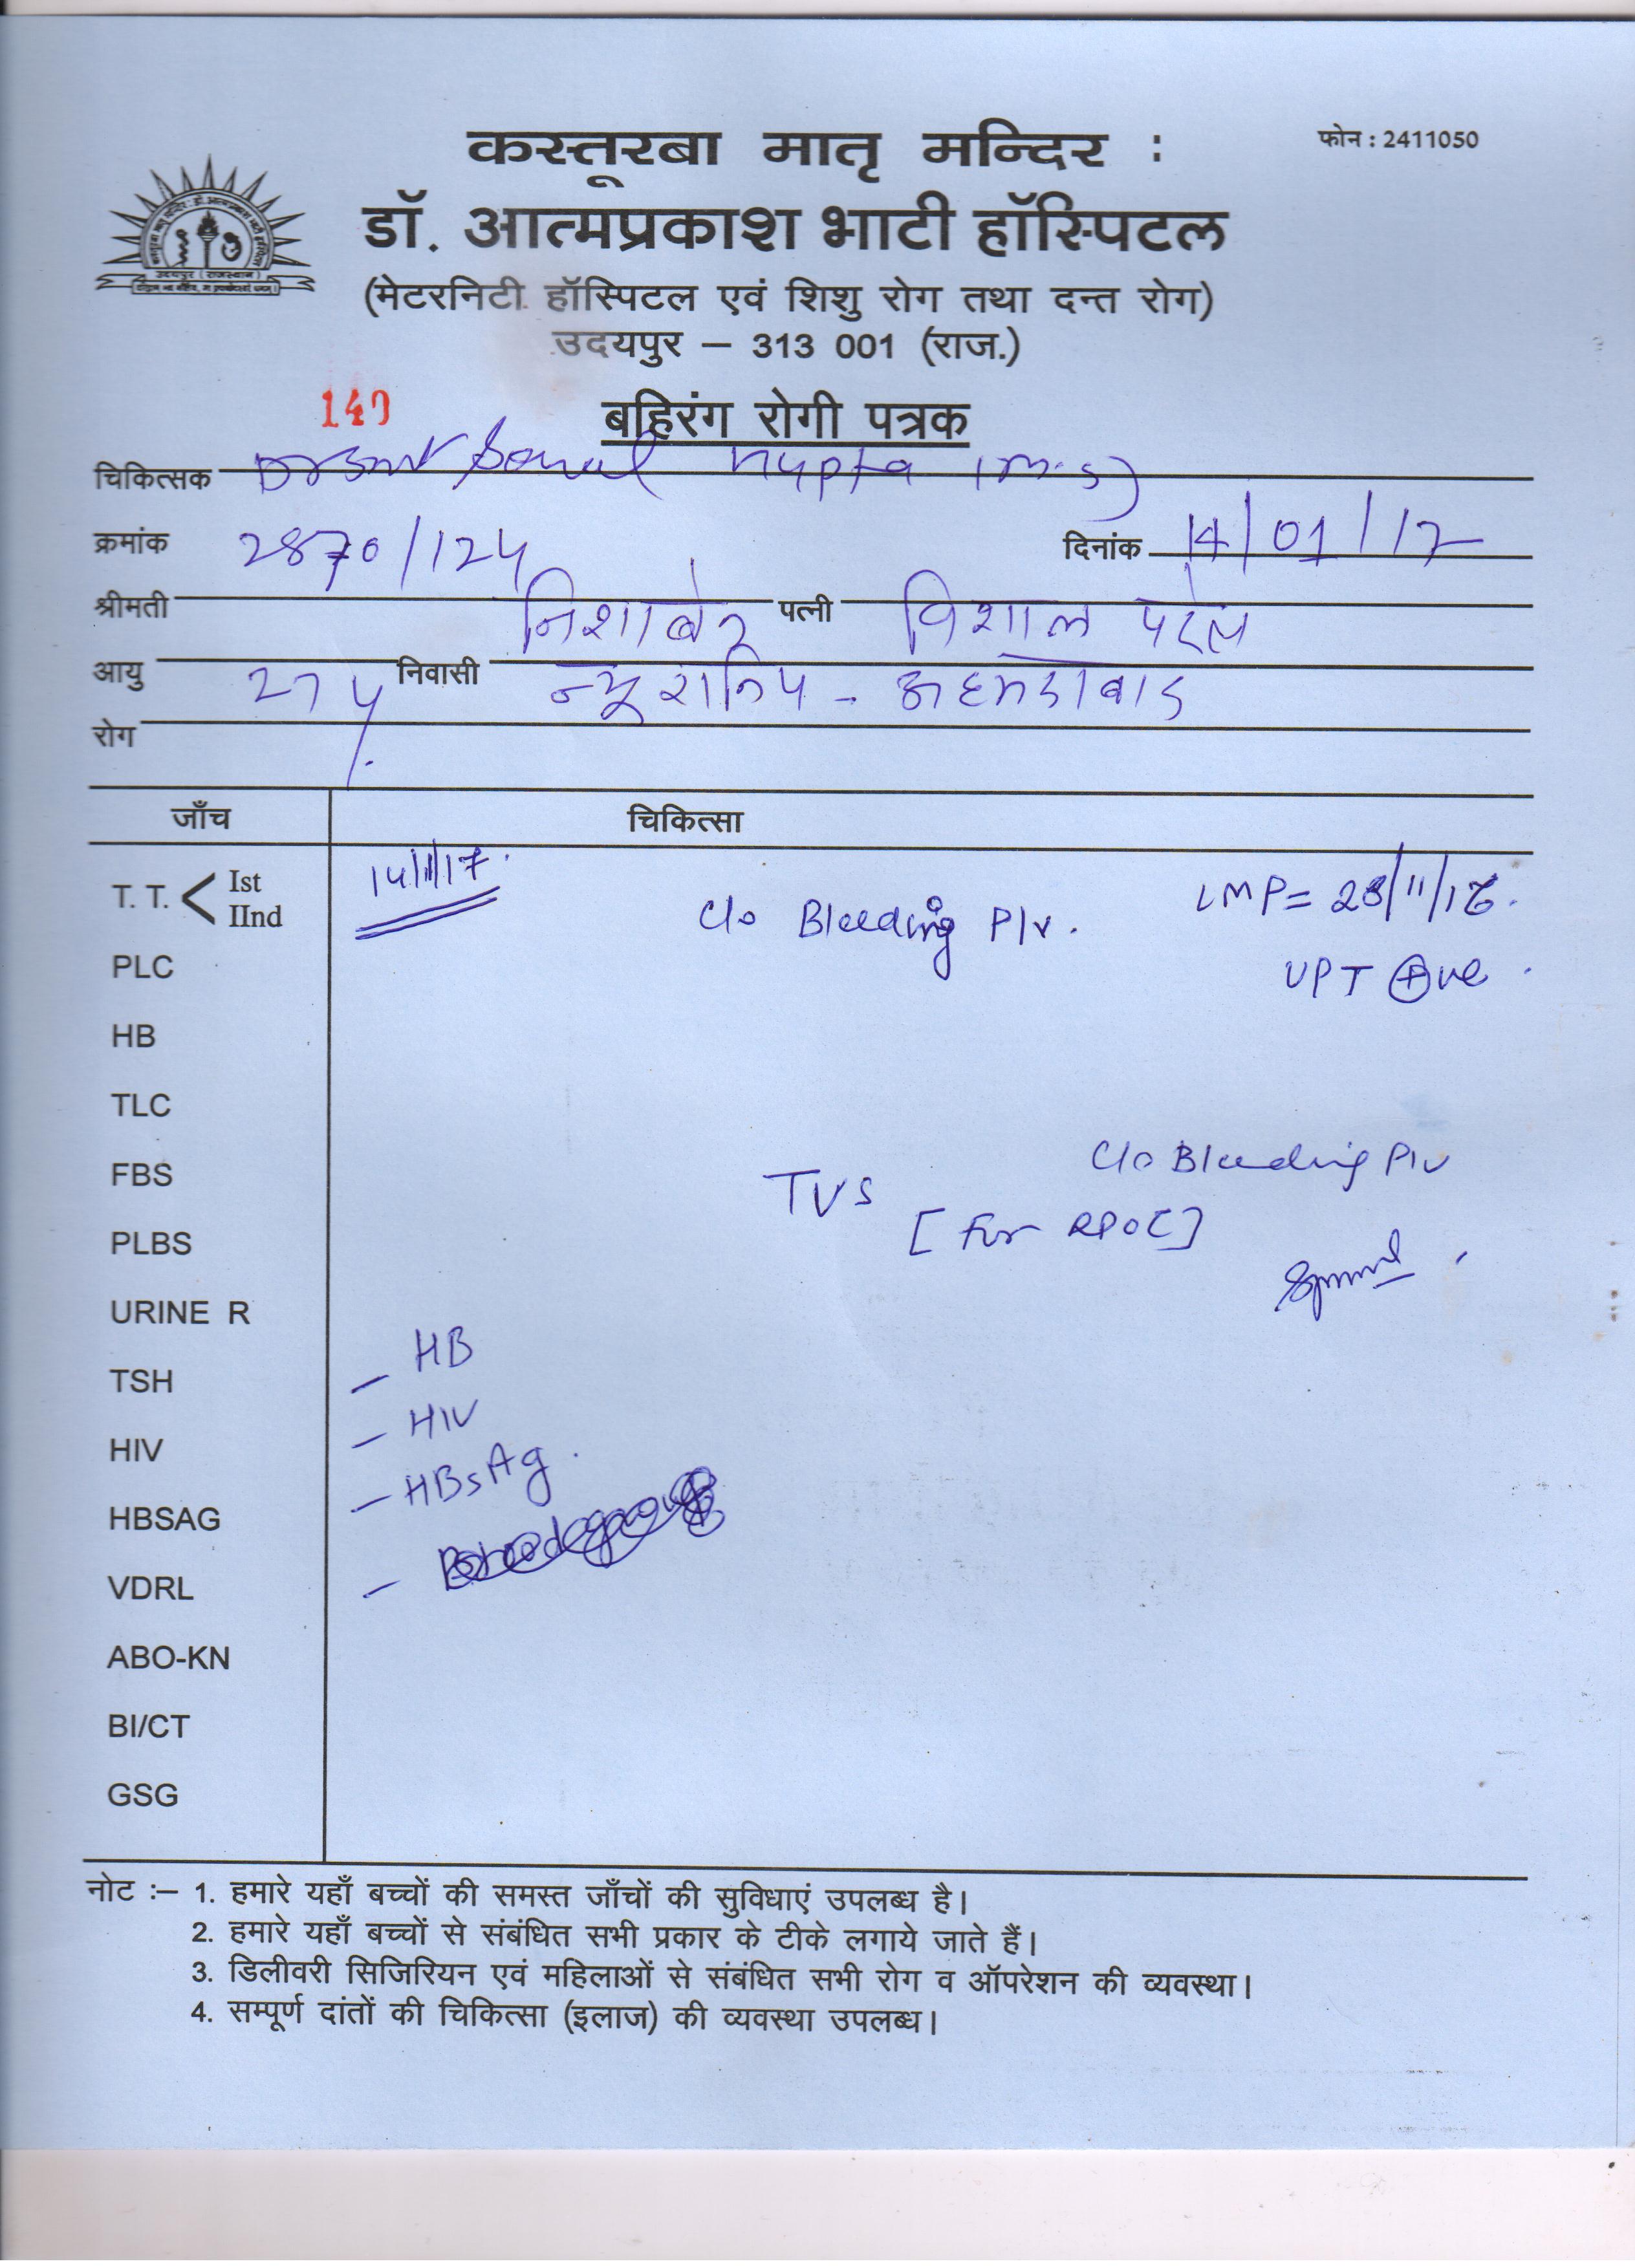 कस्तूरबा मातृ मन्दिर :
फोन : 2411050
डॉ. आत्मप्रकाश भाटी हॉस्पिटल
(मेटरनिटी हॉस्पिटल एवं शिशु रोग तथा दन्त रोग)
उदयपुर – 313 001 (राज.)
उदयपुर (राजस्थान)
140
बहिरंग रोगी पत्रक
चिकित्सक Gupta (M.S)
क्रमांक 2870/124 दिनांक 14/01/17
श्रीमती निशाबेन पत्नी विशाल पटेल
आयु 27 y निवासी न्यू रानिप - अहमदाबाद
रोग
जाँच चिकित्सा
T. T. < Ist IInd
14/1/17.
C/o Bleeding P/v.
LMP = 28/11/16.
UPT ⊕ve.
PLC
HB
TLC
FBS
C/o Bleeding P/v
TVS
[For RPOC]
PLBS
URINE R
– HB
TSH
– HIV
HIV
– HBsAg.
HBSAG
VDRL –
ABO-KN
BI/CT
GSG
नोट :– 1. हमारे यहाँ बच्चों की समस्त जाँचों की सुविधाएं उपलब्ध है।
2. हमारे यहाँ बच्चों से संबंधित सभी प्रकार के टीके लगाये जाते हैं।
3. डिलीवरी सिजिरियन एवं महिलाओं से संबंधित सभी रोग व ऑपरेशन की व्यवस्था।
4. सम्पूर्ण दांतों की चिकित्सा (इलाज) की व्यवस्था उपलब्ध।